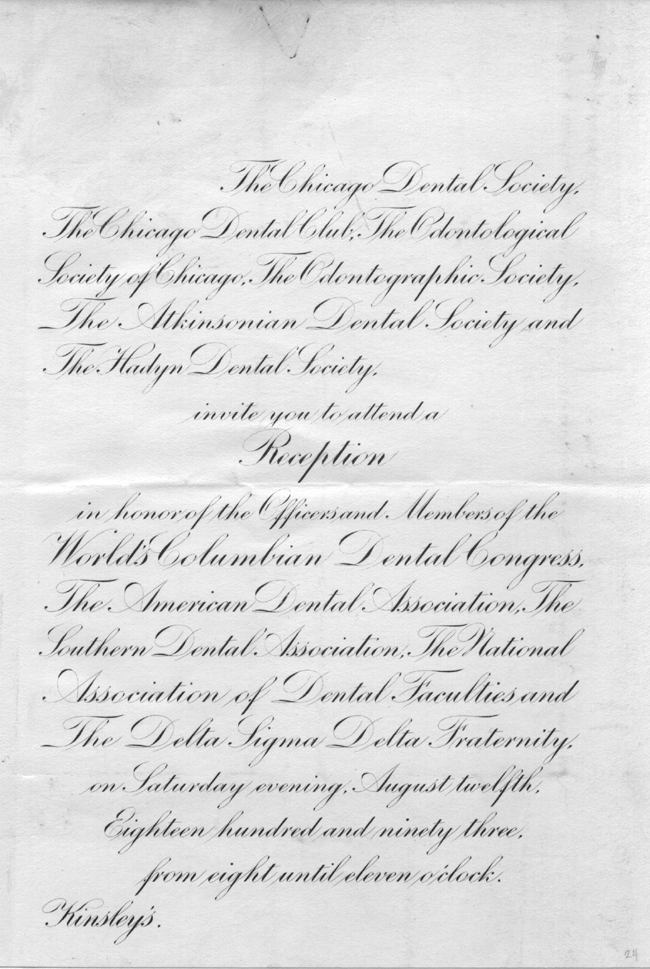 The Chicago Dental Society,
The Chicago Dental Club, The Odontological
Society of Chicago, The Odontographic Society,
The Atkinsonian Dental Society and
The Hadyn Dental Society,
invite you to attend a
Reception
in honor of the Officers and Members of the
World's Columbian Dental Congress,
The American Dental Association, The
Southern Dental Association, The National
Association of Dental Faculties and
The Delta Sigma Delta Fraternity,
on Saturday evening, August twelfth,
Eighteen hundred and ninety three,
from eight until eleven o'clock.
Kinsley's.
24